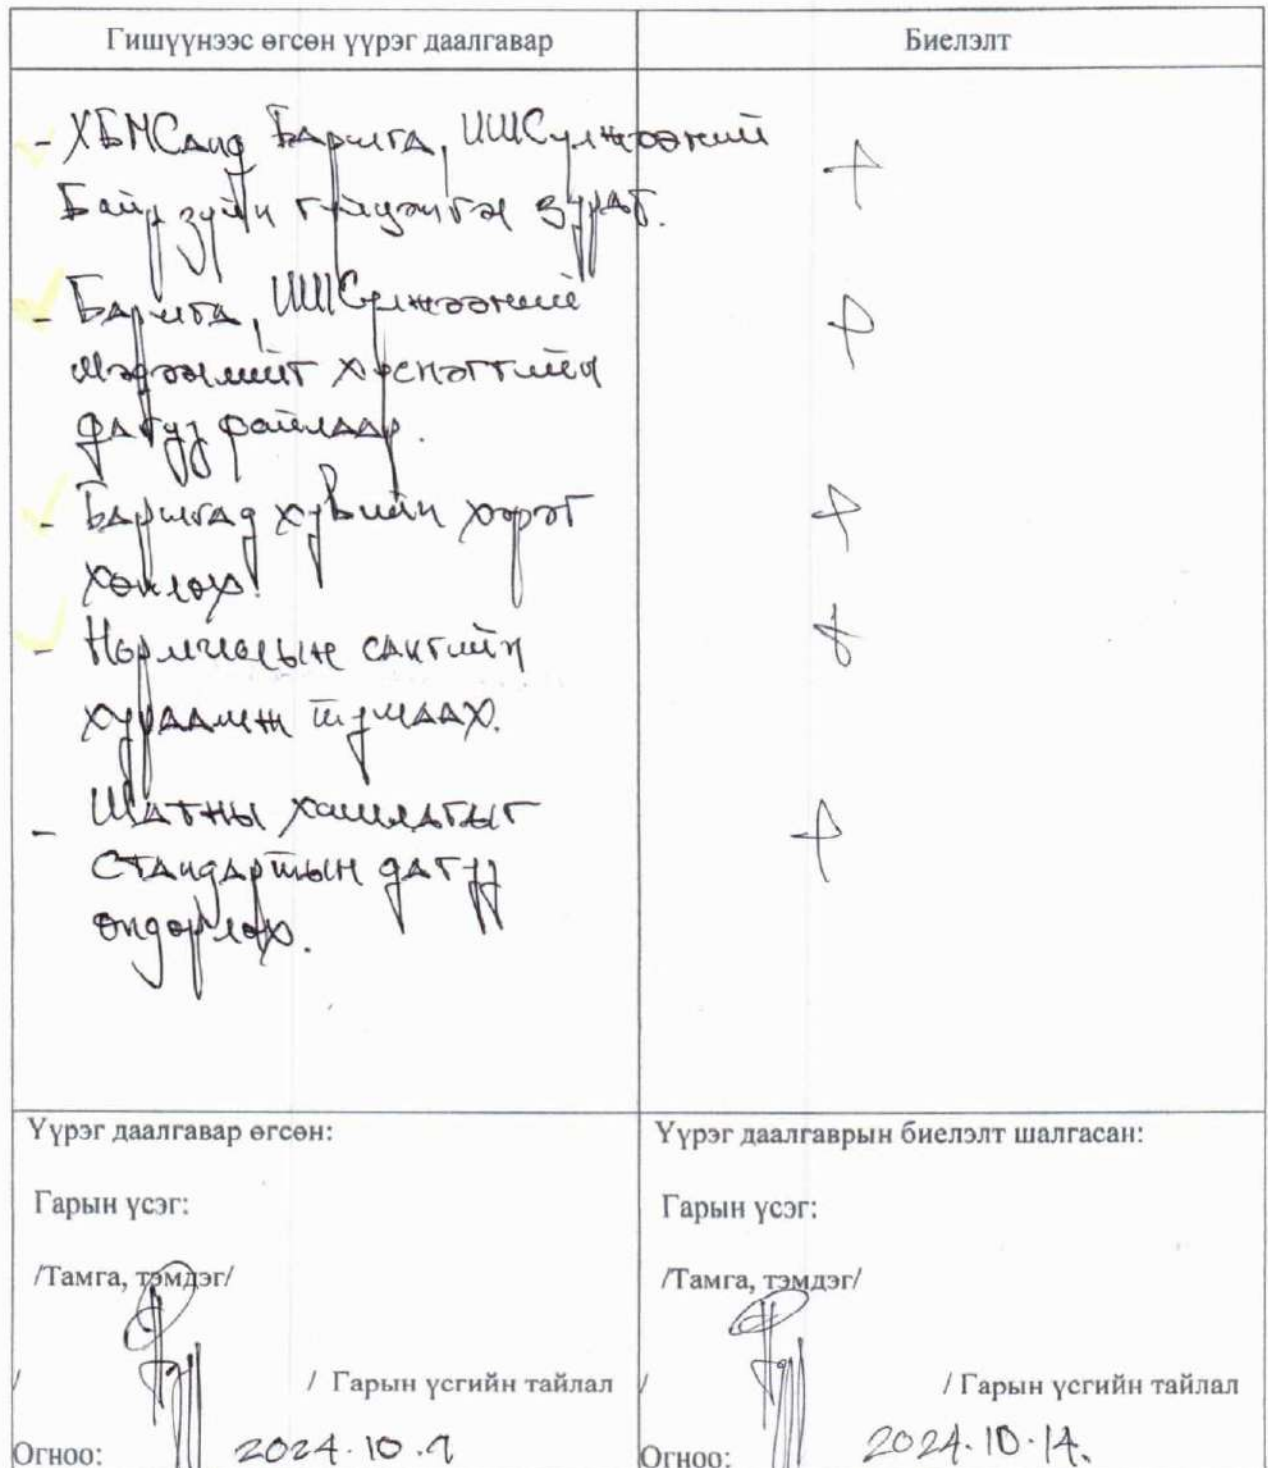 Гишүүнээс өгсөн үүрэг даалгавар
Биелэлт
- ХБМСанд Барилга, ИШСүлжээний
Байр зүйн гүйцэтгэл зураг.
- Барилга, ИШСүлжээний
мэдээллийг хүснэгтийн
дагуу файлаар.
- Барилгад хувийн хэрэг
хөтлөх.
- Нормчлолын сангийн
хураамж тушаах.
- Шатны хашлагыг
Стандартын дагуу
өндөрлөх.
+
+
+
+
+
Үүрэг даалгавар өгсөн:
Гарын үсэг:
/Тамга, тэмдэг/
/ / Гарын үсгийн тайлал
Огноо: 2024.10.9
Үүрэг даалгаврын биелэлт шалгасан:
Гарын үсэг:
/Тамга, тэмдэг/
/ / Гарын үсгийн тайлал
Огноо: 2024.10.14.